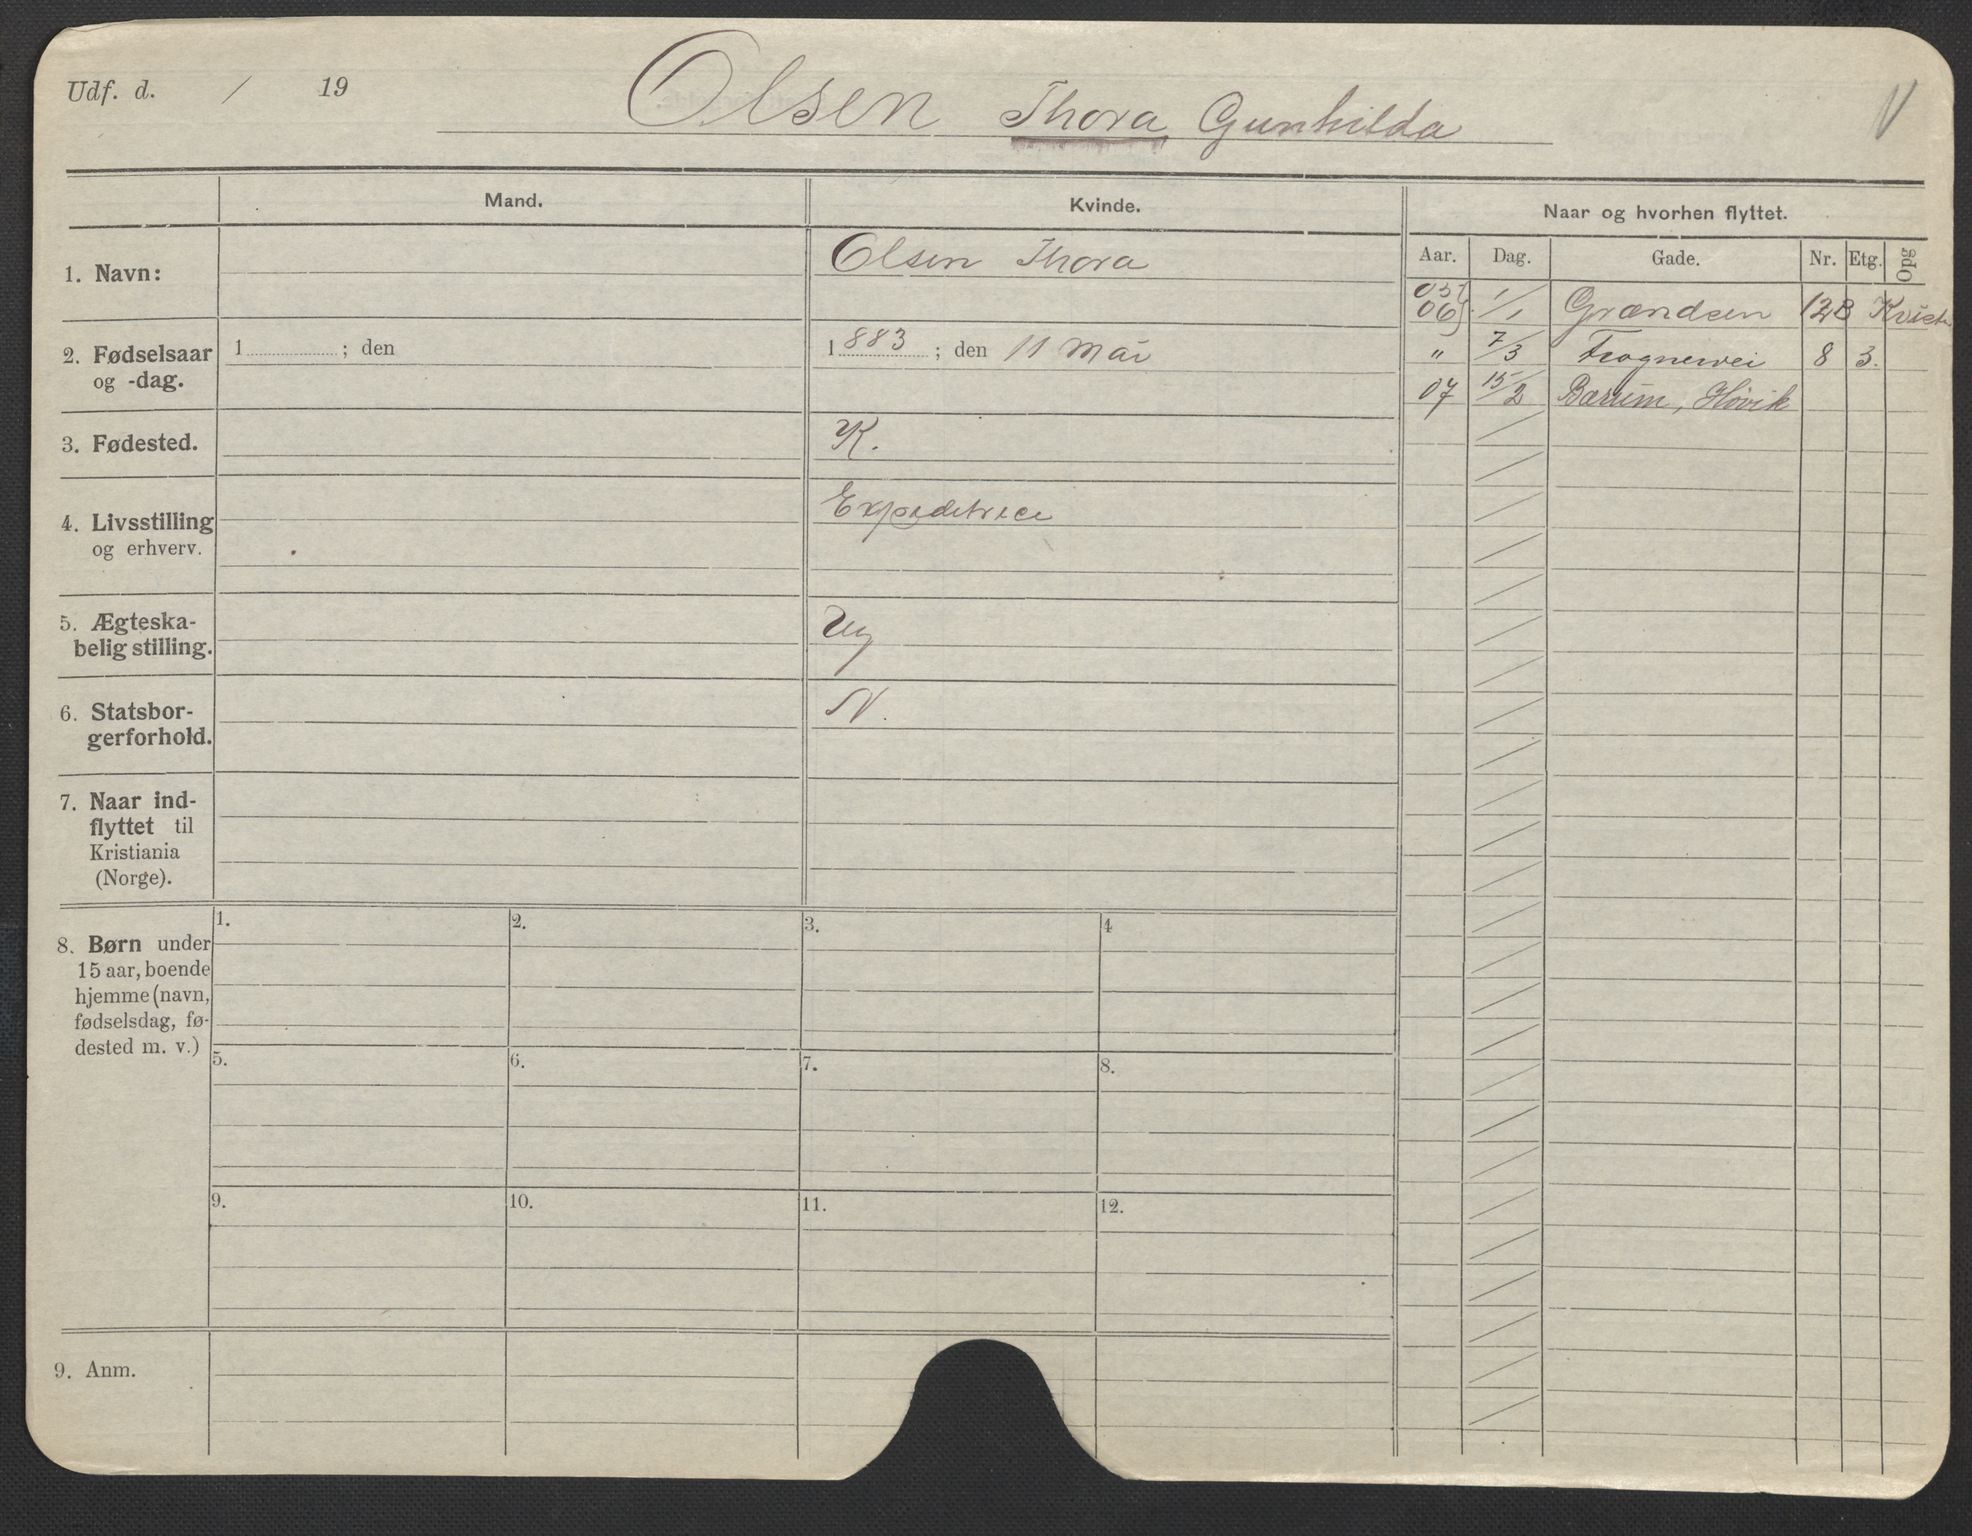 Udf. d. / 19
Olsen Thora Gunhilda
Mand.
Kvinde.
Naar og hvorhen flyttet.
Aar. Dag. Gade. Nr. Etg. Opg
1. Navn:
Olsen Thora
2. Fødselsaar
og -dag.
1 ; den
1883 ; den 11 Mai
3. Fødested.
K.
4. Livsstilling
og erhverv.
Expeditrice
5. Ægteska-
belig stilling.
Ug
6. Statsbor-
gerforhold.
N.
7. Naar ind-
flyttet til
Kristiania
(Norge).
05
06 1/1 Grændsen 12B Kvist
" 7/3 Frognervei 8 3.
07 15/2 Bærum, Høvik
8. Børn under
15 aar, boende
hjemme (navn,
fødselsdag, fø-
dested m. v.)
1. 2. 3. 4
5. 6. 7. 8.
9. 10. 11. 12.
9. Anm.